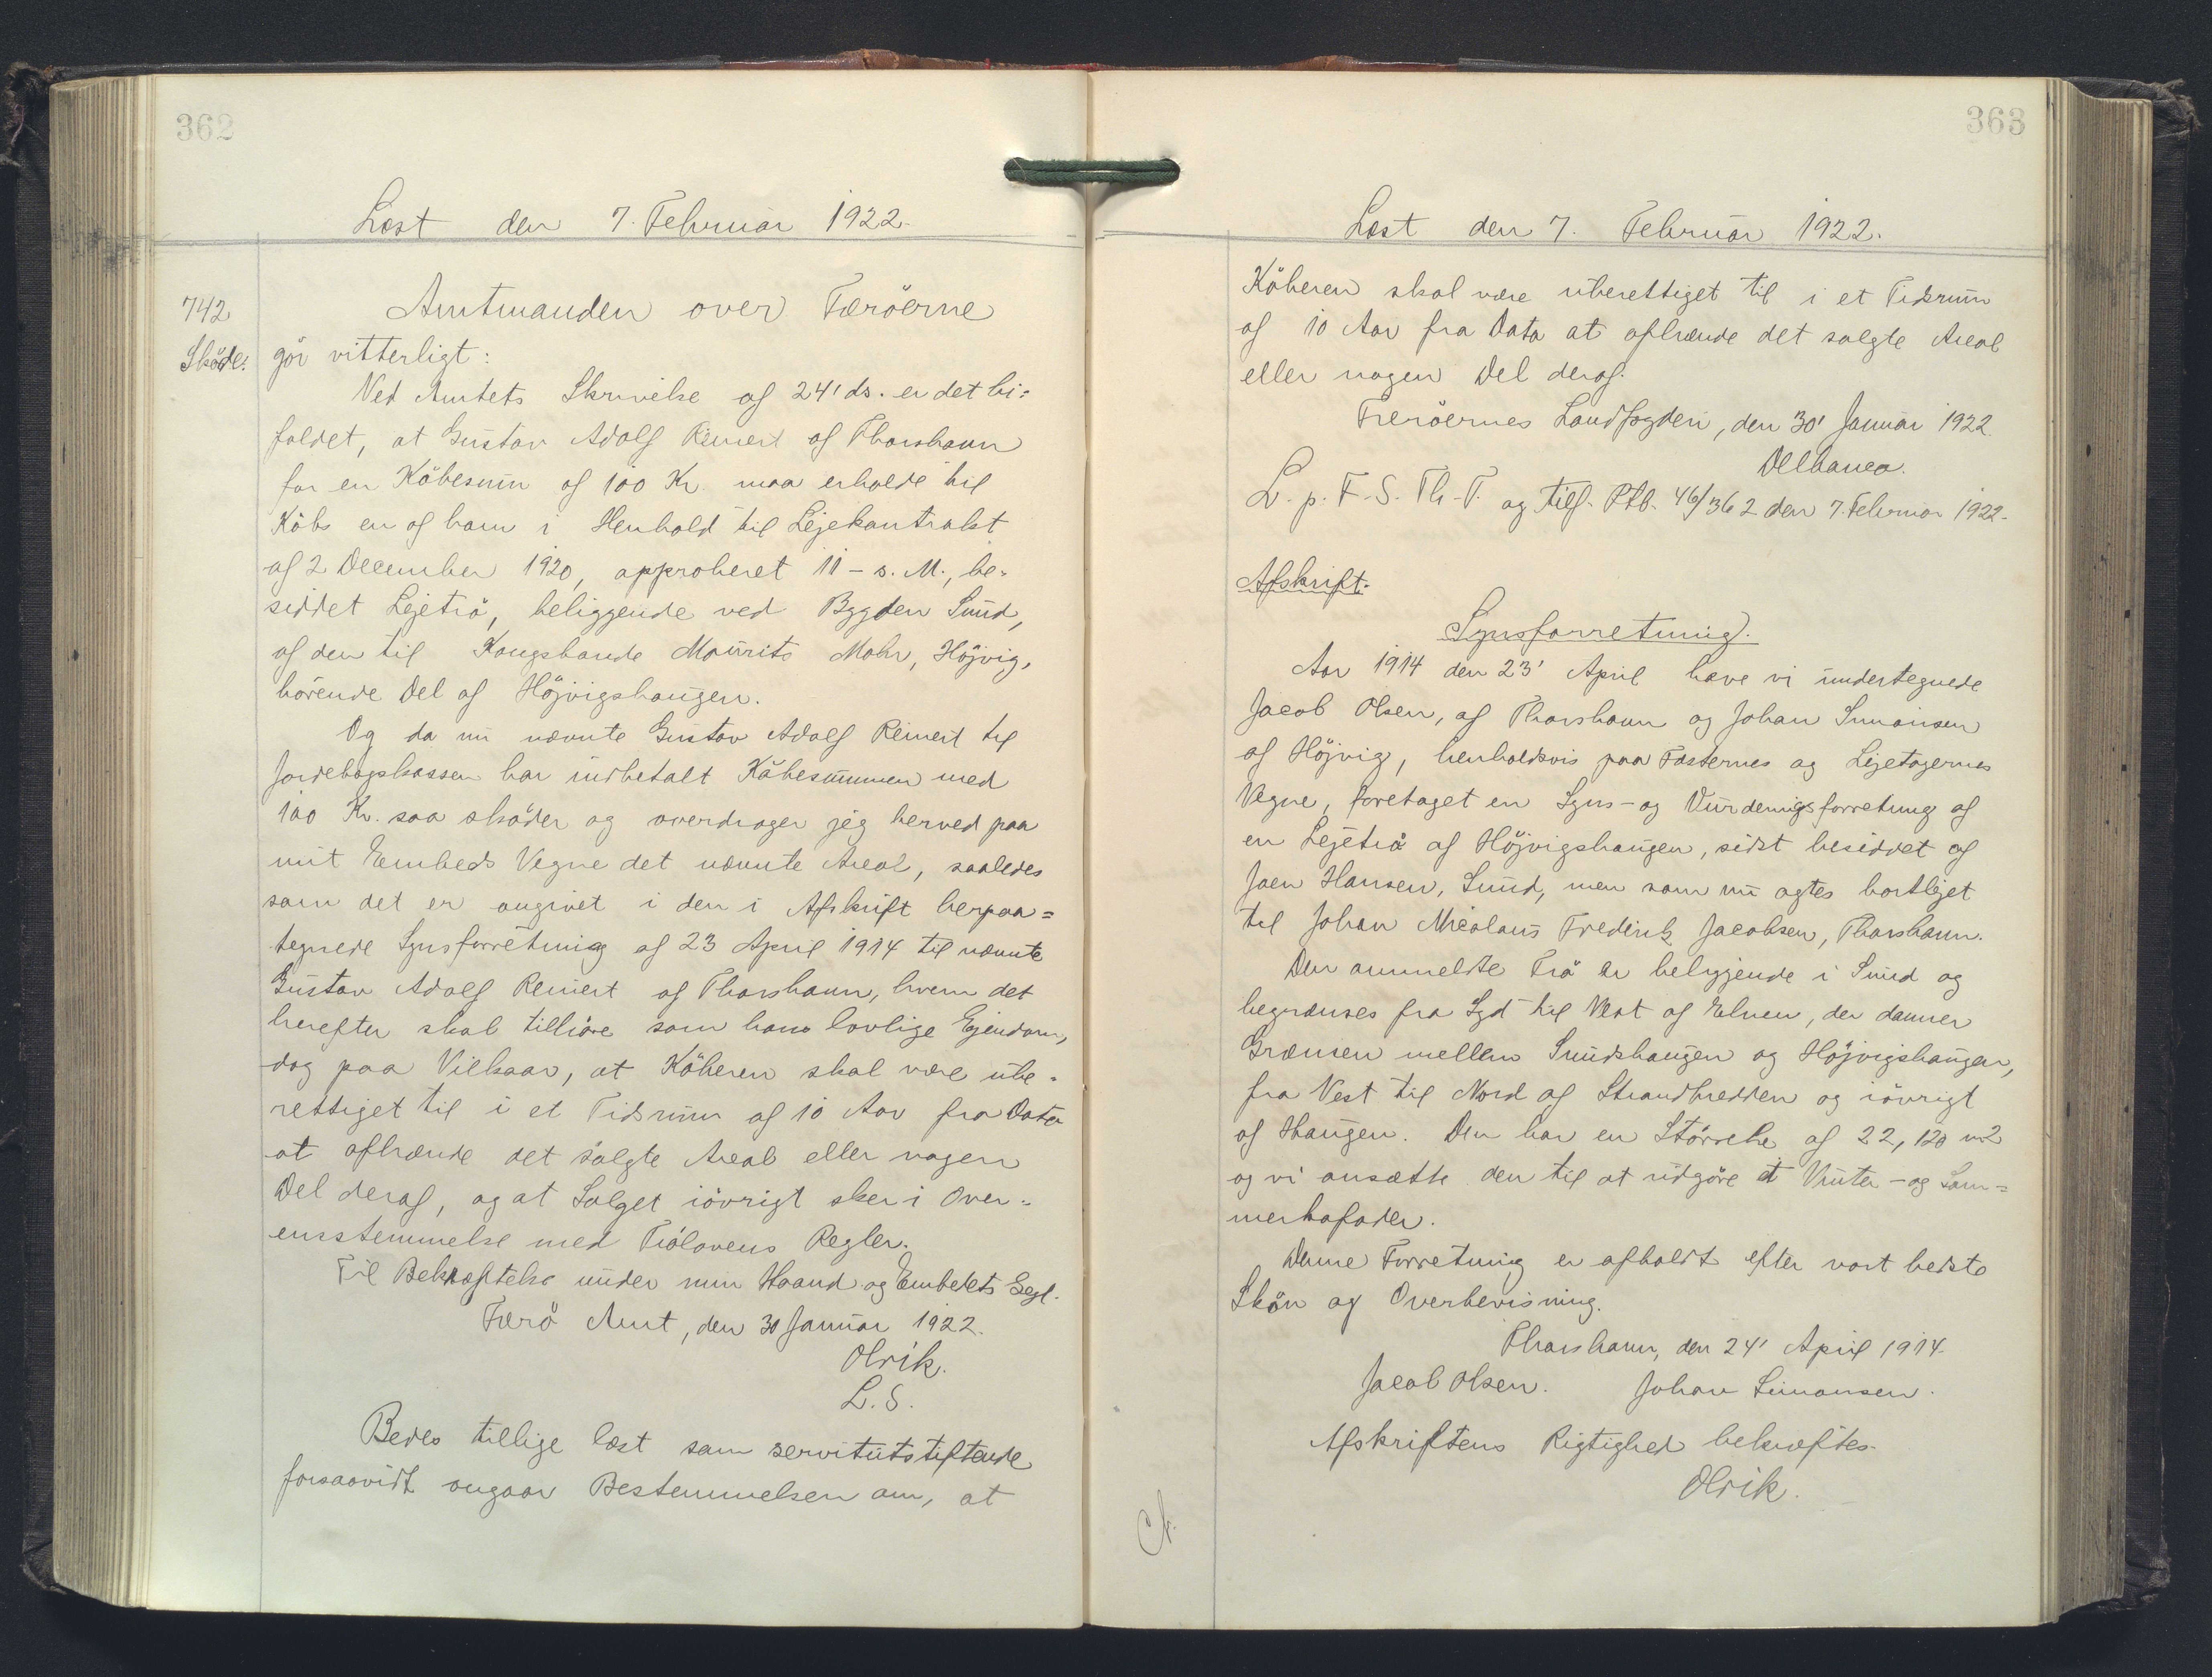 362
Læst den 7. Februar 1922.
742
Sköde:
Amtmanden over Færöerne
gör vitterligt:
Ved Amtets Skrivelse af 24' ds. er det bi=
faldet, at Gustav Adolf Reinert af Thorshavn
for en Köbesum af 100 Kr. maa erholde til
Köbs en af ham i Henhold til Lejekontrakt
af 2 December 1920, approberet 11 - s. M., be=
siddet Lejetrö, beliggende ved Bygden Sund,
af den til Kongsbonde Mourits Mohr, Höjvig,
hörende Del af Höjvigshaugen.
Og da nu nævnte Gustav Adolf Reinert til
Jordebogskassen har indbetalt Köbesummen med
100 Kr. saa sköder og overdrager jeg herved paa
mit Embeds Vegne det nævnte Areal, saaledes
som det er angivet i den i Afskrift herpaa=
tegnede Synsforretning af 23 April 1914 til nævnte
Gustav Adolf Reinert af Thorshavn, hvem det
herefter skal tilhöre som hans lovlige Ejendom,
dog paa Vilkaar, at Köberen skal være ube=
rettiget til i et Tidsrum af 10 Aar fra Dato
at afhænde det solgte Areal eller nogen
Del deraf, og at Salget iövrigt sker i Over=
ensstemmelse med Trölovens Regler.
Til Bekræftelse under min Haand og Embedets Segl.
Færö Amt, den 30 Januar 1922.
Olrik.
L.S.
Bedes tillige læst som servitutstiftende
forsaavidt angaar Bestemmelsen om, at
363
Læst den 7. Februar 1922.
Köberen skal være uberettiget til i et Tidsrum
af 10 Aar fra Dato at afhænde det solgte Areal
eller nogen Del deraf.
Færöernes Landfogderi, den 30' Januar 1922.
Delbanco.
L. p. F. S. Th-T. og tilf. Ptb. 46/362 den 7. Februar 1922.
Afskrift:
Synsforretning.
Aar 1914 den 23' April have vi undertegnede
Jacob Olsen, af Thorshavn og Johan Simonsen
af Höjvig, henholdsvis paa Fæsternes og Lejetagernes
Vegne, foretaget en Syns- og Vurderingsforretning af
en Lejetrö af Höjvigshaugen, sidst besiddet af
Joen Hansen, Sund, men som nu agtes bortlejet
til Johan Nicolaus Frederik Jacobsen, Thorshavn.
Den anmeldte Trö er beliggende i Sund og
begrænses fra Syd til Vest af Elven, der danner
Grænsen mellem Sundshaugen og Höjvigshaugen,
fra Vest til Nord af Strandbredden og iövrigt
af Haugen. Den har en Störrelse af 22,120 m2
og vi ansætte den til at udgöre et Vinter - og Som=
merkofoder.
Denne Forretning er afholdt efter vort bedste
Skön og Overbevisning.
Thorshavn, den 24' April 1914.
Jacob Olsen. Johan Simonsen.
Afskriftens Rigtighed bekræftes.
Olrik.